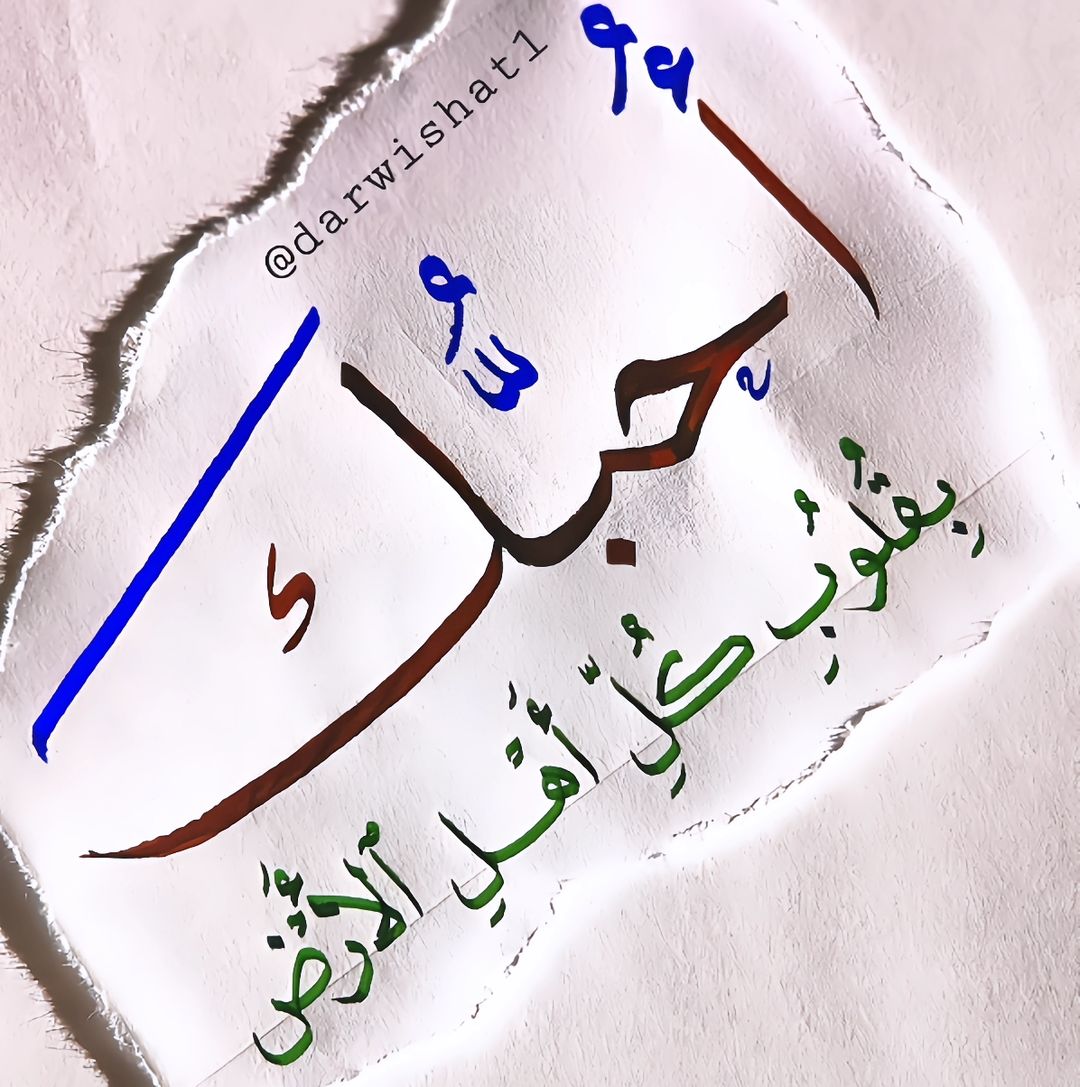 @darwishat1
أُحِبُّك
بِقُلُوبِ كُلِّ أَهْلِ ٱلْأَرْضِ